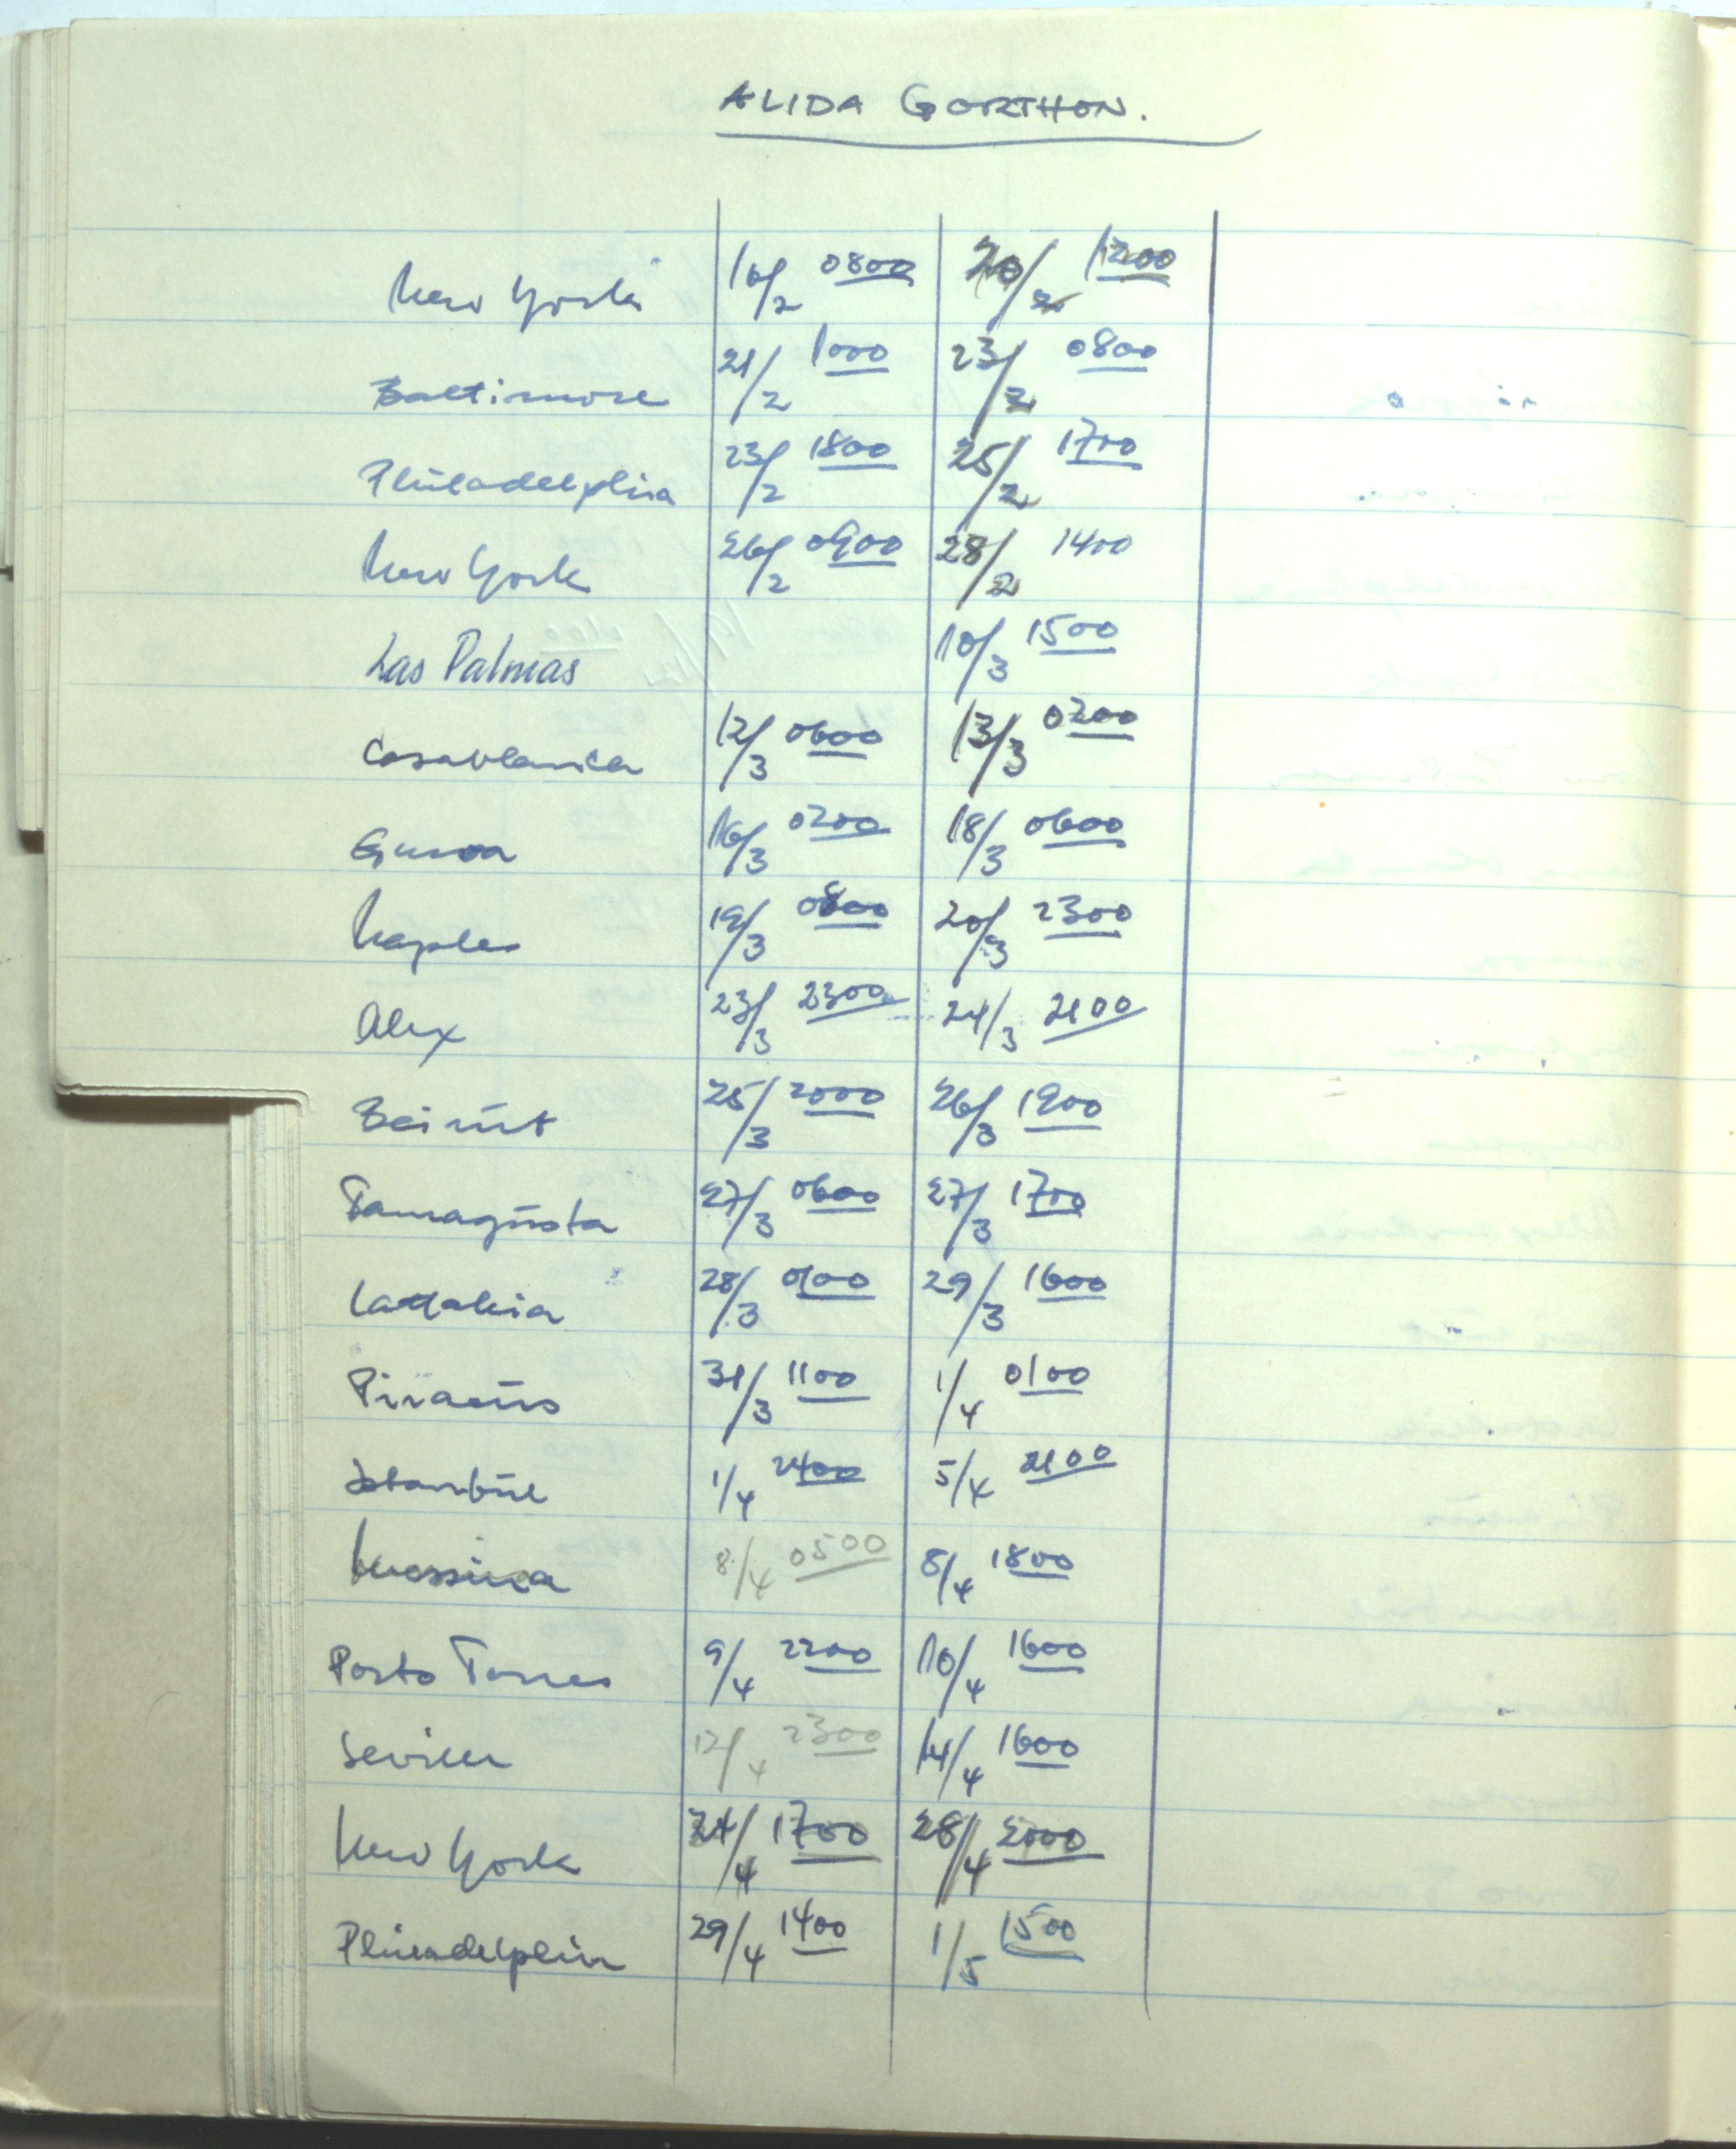 ALIDA GORTHON.
New York 16/2 0800 20/2 1200
Baltimore 21/2 1000 23/2 0800
Philadelphia 23/2 1800 25/2 1700
New York 26/2 0900 28/2 1400
Las Palmas 10/3 1500
Casablanca 12/3 0600 13/3 0200
Genoa 16/3 0200 18/3 0600
Naples 19/3 0800 20/3 2300
Alex 23/3 2300 24/3 2100
Beirut 25/3 2000 26/3 1900
Famagusta 27/3 0600 27/3 1700
Lattakia 28/3 0100 29/3 1600
Piraeus 31/3 1100 1/4 0100
Istanbul 1/4 2400 5/4 2100
Messina 8/4 0500 8/4 1800
Porto Torres 9/4 2200 10/4 1600
Seville 12/4 2300 14/4 1600
New York 24/4 1700 28/4 2000
Philadelphia 29/4 1400 1/5 1500